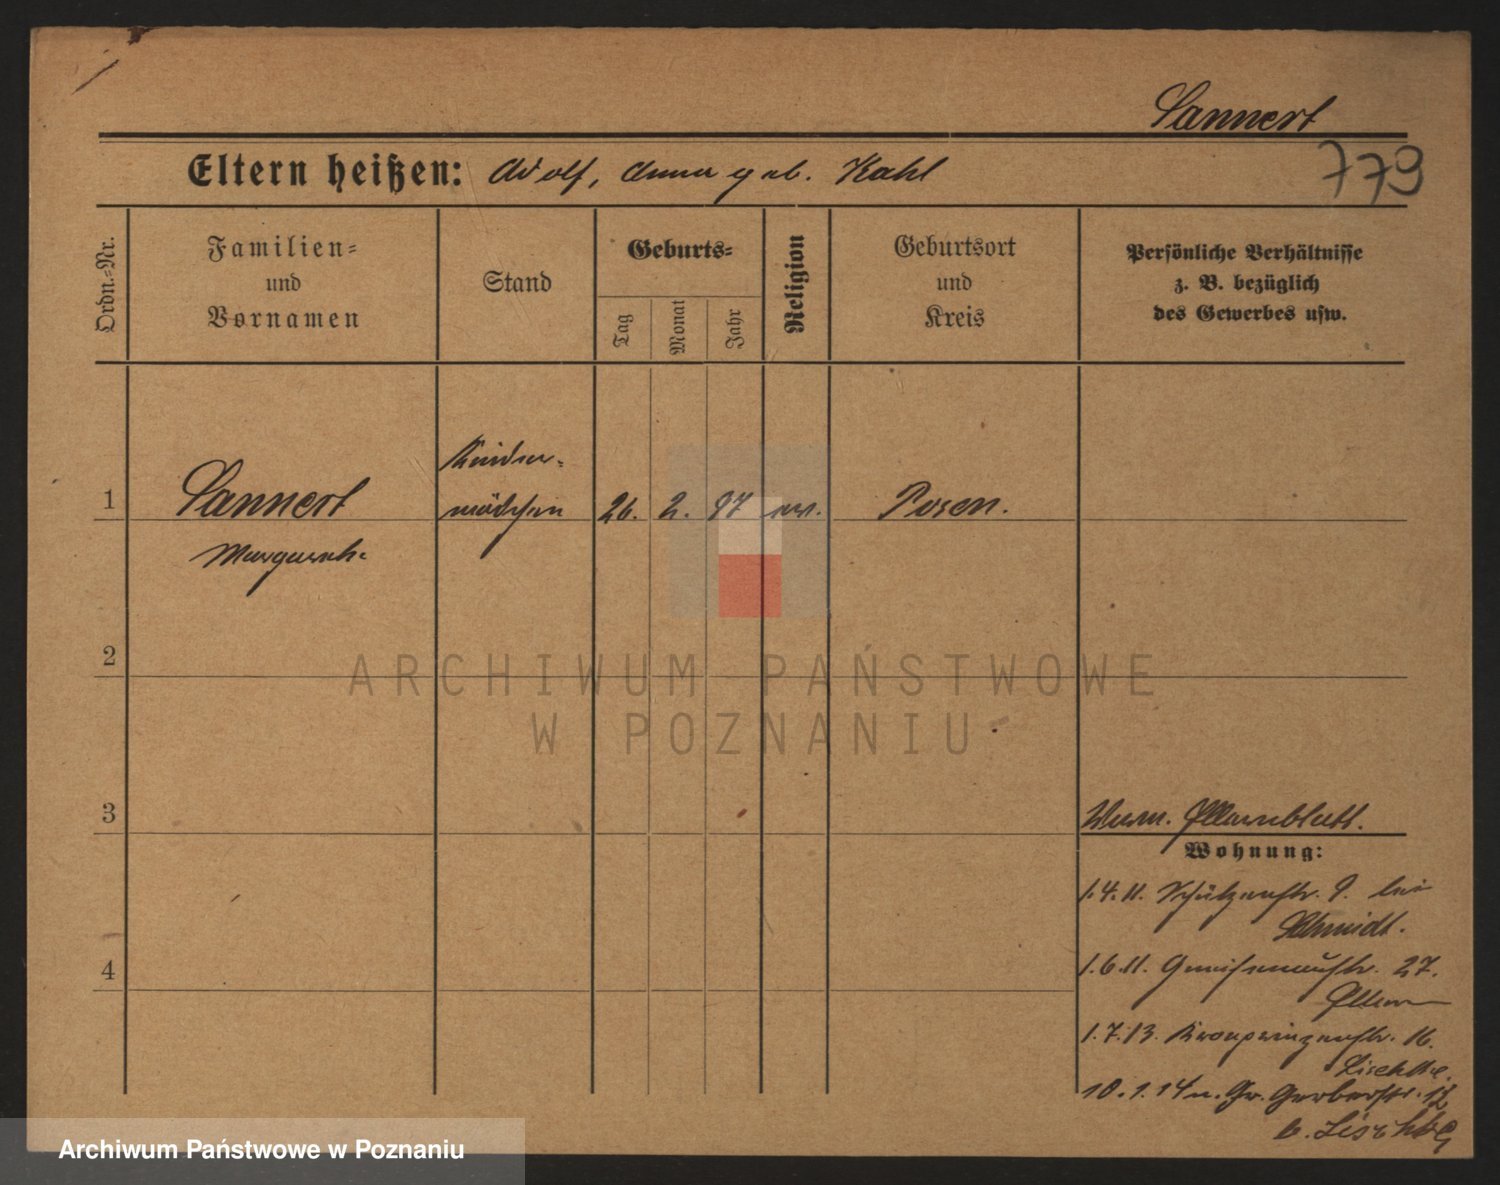 Sannert
779
Eltern heißen: Adolf, Anna geb. Kahl
Ordn.=Nr.
Familien=
und
Vornamen
Stand
Geburts=
Tag
Monat
Jahr
Religion
Geburtsort
und
Kreis
Persönliche Verhältnisse
z. B. bezüglich
des Gewerbes usw.
Kinder-
1 Sannert mädchen 26. 2. 97 ev. Posen.
Margareth
2
3
Elternblatt.
Wohnung:
1.4.11. Schützenstr. 9. bei
Schmidt.
4
1.6.11. Gneisenaustr. 27.
Eltern
1.7.13. Kronprinzenstr. 16.
10.1.14 n. Gr. Gerberstr. 12
b.
ARCHIWUM PAŃSTWOWE
W POZNANIU
Archiwum Państwowe w Poznaniu